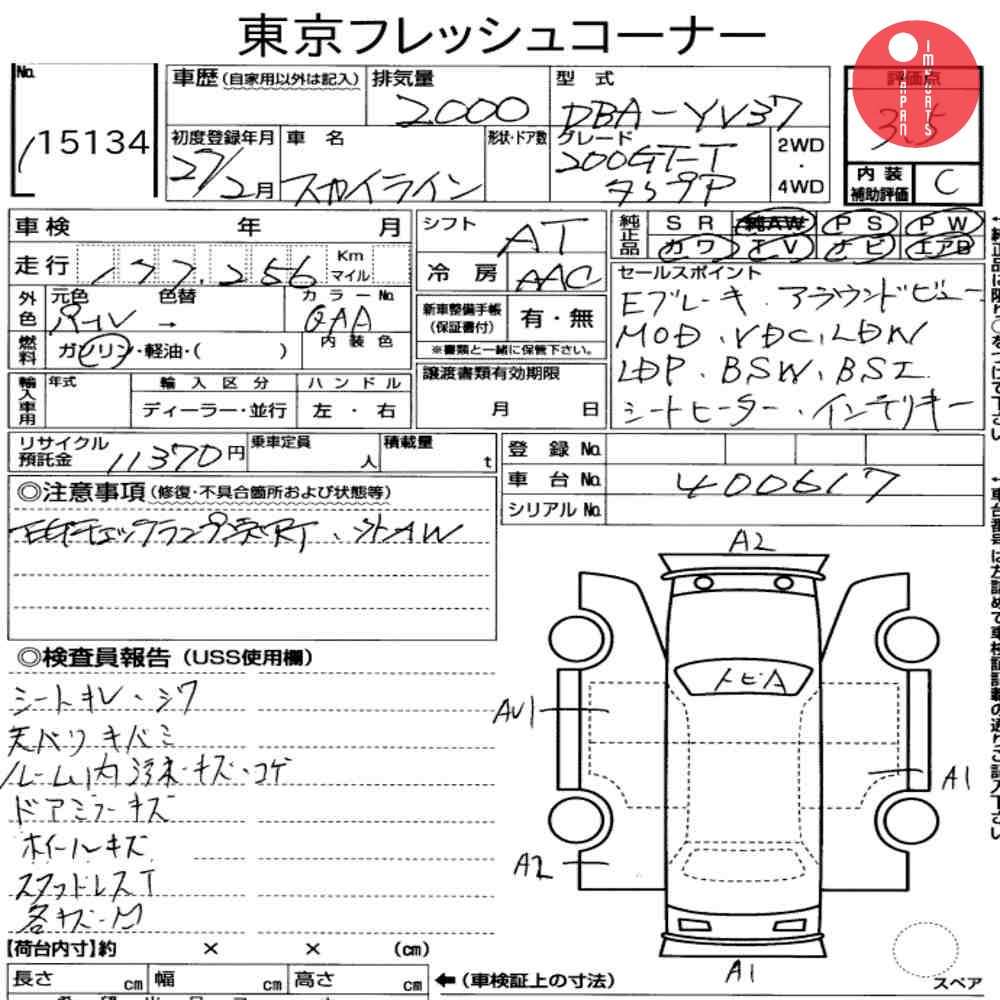 東京フレッシュコーナー
IMPORTS
JAPAN
No.
15134
車歴 (自家用以外は記入)
排気量
2000
型 式
DBA-YV37
評価点
3.5
初度登録年月
27/2月
車 名
スカイライン
形状・ドア数
グレード
200GT-T
タイプP
2WD
・
4WD
内 装
補助評価
C
車検 年 月
シフト
AT
純正品
SR 純AW PS PW
カワ TV ナビ エアB
走行
177,256
Km
マイル
冷 房
AAC
セールスポイント
Eブレーキ. アラウンドビュー
MOD. VDC. LDW
LDP. BSW. BSI.
シートヒーター. インテリキー
外色
元色 色替
パール →
カラーNo.
QAA
内 装 色
新車整備手帳
(保証書付)
有・無
※書類と一緒に保管下さい。
燃料
ガソリン・軽油・( )
輸入車用
年式
輸 入 区 分
ディーラー・並行
ハ ン ド ル
左 ・ 右
譲渡書類有効期限
月 日
リサイクル
預託金
11370円
乗車定員
人
積載量
t
登 録 No.
車 台 No.
400617
シリアル No.
◎注意事項 (修復・不具合箇所および状態等)
◎検査員報告 (USS使用欄)
シートキレ・シワ
天バリ キバミ
ルーム内汚れ・キズ・コゲ
ドアミラーキズ
ホイールキズ
スタッドレスT
各キズ・凹
A2
トビA
AU1
A1
A2
A1
スペア
【荷台内寸】約 × × (cm)
長さ cm 幅 cm 高さ cm
←(車検証上の寸法)